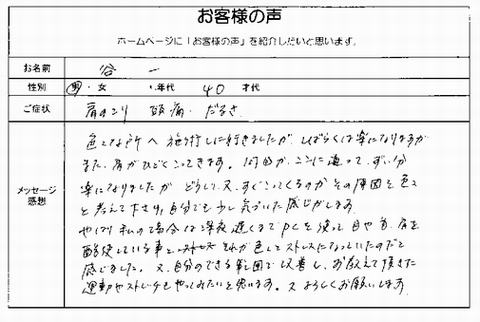 お客様の声
ホームページに「お客様の声」を紹介したいと思います。
お名前 谷 一
性別 男・女 ・年代 40 才代
ご症状 肩のこり 頭痛・だるさ
メッセージ
感想
色々な所へ 施術しに行きましたが、しばらくは楽になりますが
また、肩がひどくこってきます。 ここに通って、ずい分
楽になりましたが どうして、又、すぐこってくるのか その原因を色々
と考えて下さり、自分でも少し気づいた感じがします。
やはり私の場合は深夜遅くまでPCを使って目や首、肩を
酷使している事と、それが色々ストレスになっていたのだと
感じました。又、自分のできる範囲で改善し、お教えて頂きた
運動やストレッチをやってみたいと思います。又よろしくお願いします。